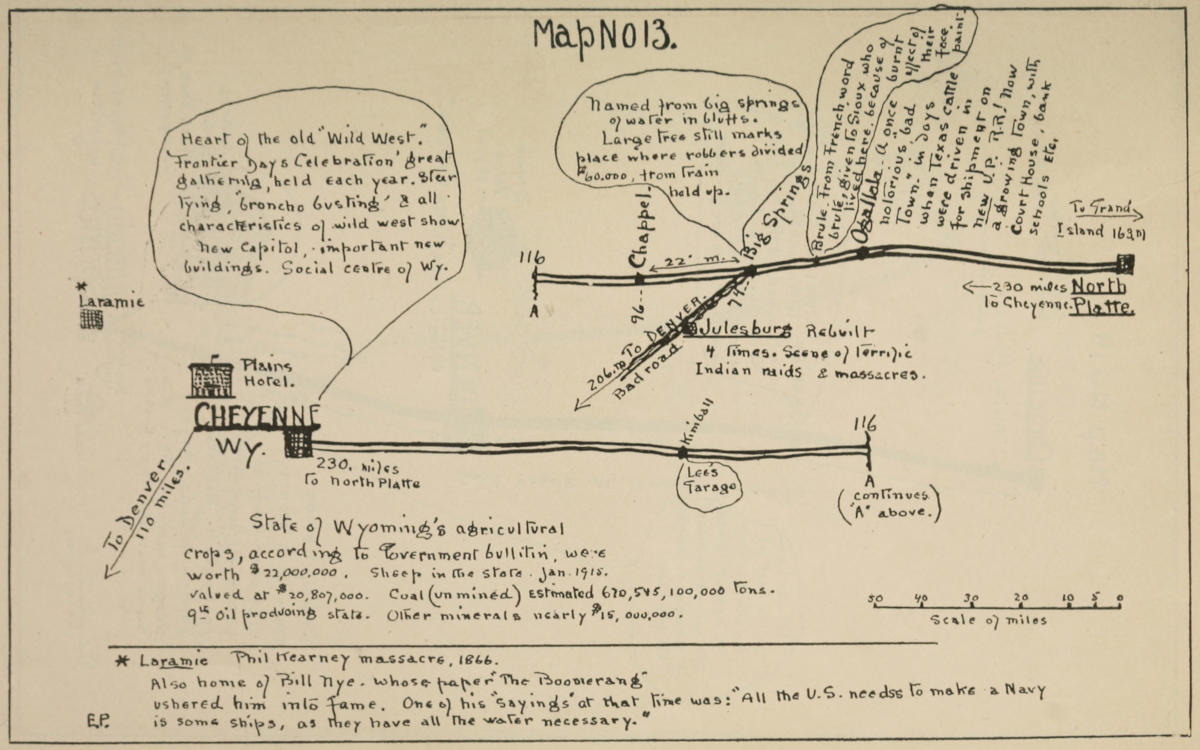 Map No 13.
Heart of the old "Wild West".
"Frontier Days Celebration" great
gathering, held each year. Steer
tying, "broncho busting" & all
characteristics of wild west show
New Capitol, important new
buildings. Social centre of Wy.
Named from big springs
of water in bluffs.
Large tree still marks
place where robbers divided
$60,000, from train
hold up.
Brule from French word
brulé, given to Sioux who
lived here, because of
burnt
effect of
their
face
paint.
Ogallala. A once
notorious "bad
Town." in days
when Texas cattle
were driven in
for shipment on
new U.P. R.R! Now
a growing Town, with
Court House, bank
schools Etc,
To Grand
Island 163 m
116
A
Chappel.
96
22 m.
Big Springs
74
←230 miles North
to Cheyenne. Platte.
Julesburg Rebuilt
4 Times. Scene of Terrific
Indian raids & massacres.
206 m To DENVER.
Bad road
*
Laramie
Plains
Hotel.
CHEYENNE
Wy.
230. miles
To North Platte
Kimball
Lee's
Garage
116
A
(continues
"A" above.)
To Denver
110 miles.
State of Wyoming's agricultural
crops, according to Government bullitin, were
worth $22,000,000. Sheep in the state. Jan. 1915.
valued at $20,807,000. Coal (unmined) Estimated 670,545,100,000 Tons.
9th Oil produoing state. Other minerals nearly $15,000,000.
50 30 20 10 5 0
Scale of miles
* Laramie Phil Kearney massacre, 1866.
Also home of Bill Nye. whose paper "The Boomerang"
ushered him into fame. One of his "sayings" at that time was: "All the U.S. needss to make a Navy
is some ships, as they have all the water necessary."
E.P.